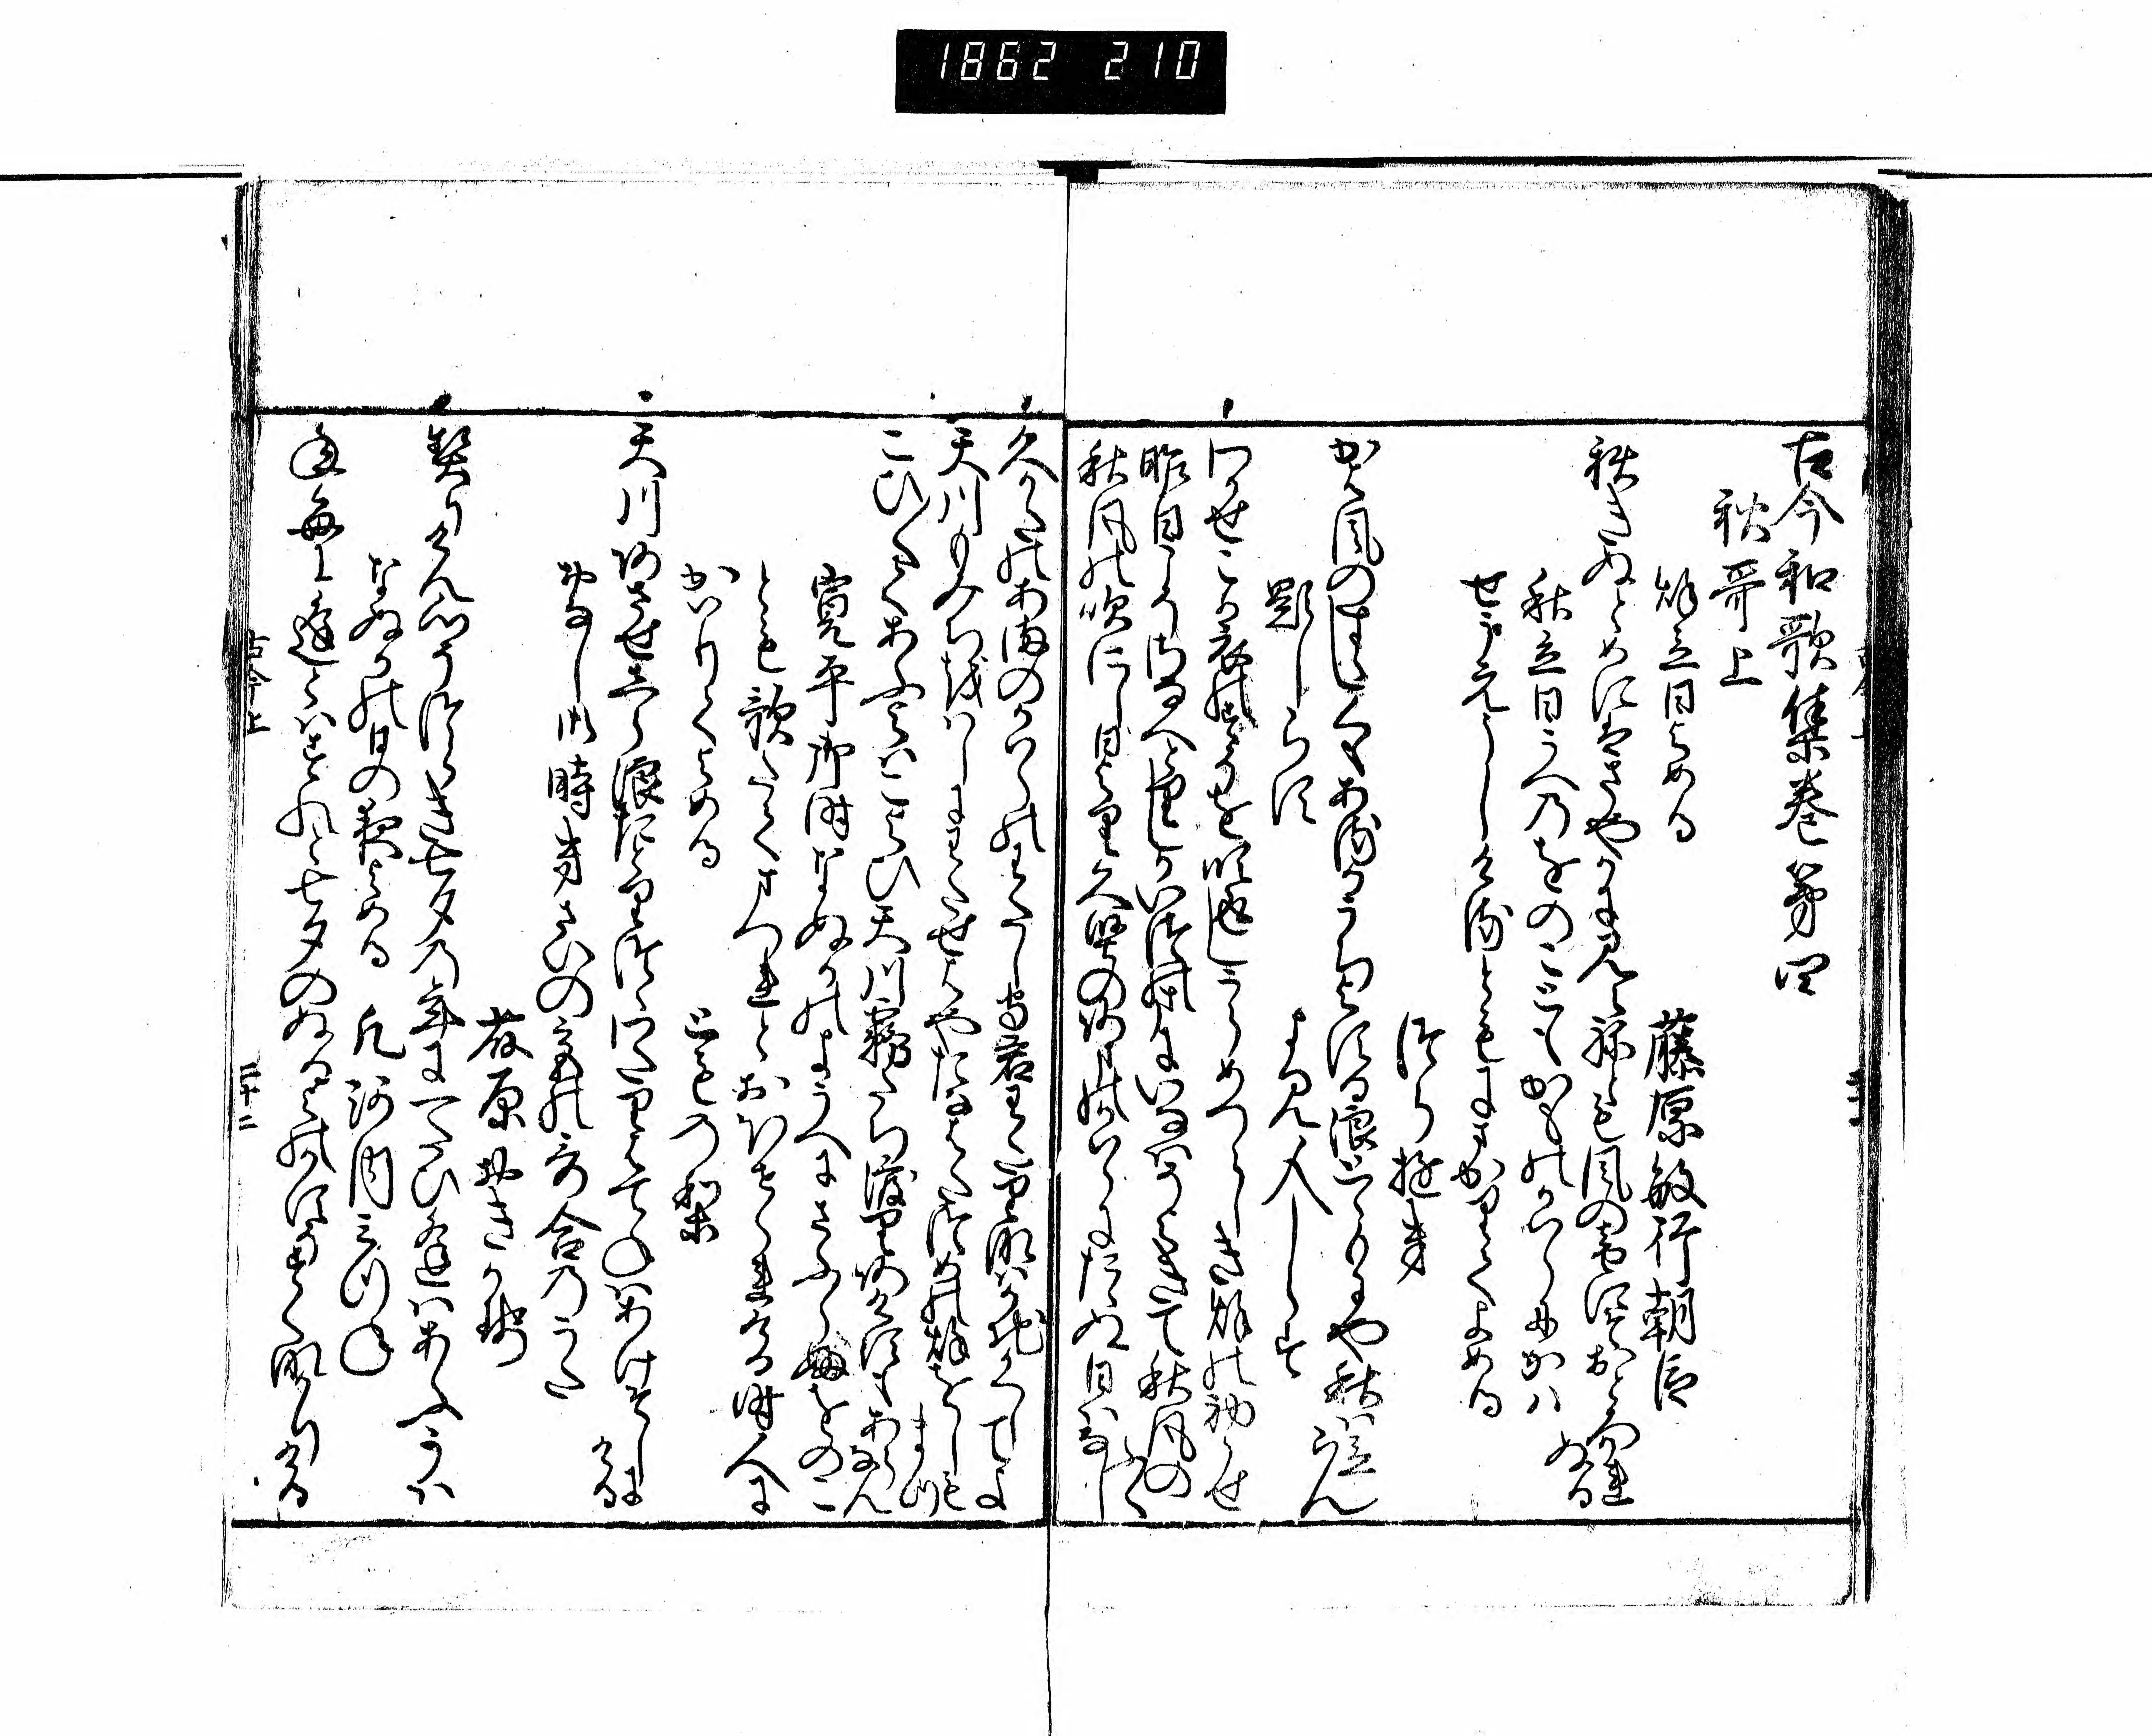 1862 210
古今和歌集巻第四
秋哥上
秋立日よめる
藤原敏行朝臣
秋きぬとめにはさやかに見えねとも風の音にそおとろかれぬる
秋立日うへのをのこともかものかはらにかは
せうえうしけるともにまかりてよめる
つらゆき
かは風のすゝしくもあるかうちよする浪とゝもにや秋は立らん
題しらす
よみ人しらす
わかせこか衣のすそを吹返しうらめつらしき秋の初かせ
昨日こそさなへとりしかいつのまにいなはそよきて秋風のふく
秋風の吹にし日より久堅のあまのかはらにたゝぬ日はなし
久かたのあまのかはらのわたし守君わたりなはかちかくしてよ
天川もみちをはしにわたせはやたなはたつめの秋をしもまつ
こひ〳〵てあふよはこよひ天川霧たち渡りあけすもあらなん
寛平御時なぬかのようへにさふらふをのこ
とも歌たてまつれとおほせられける時人に
かはりてよめる
とものり
天川あさせしら浪たとりつゝわたりはてねはあけそしにける
おなし御時きさいの宮の哥合のうた
藤原おきかせ
契りけん心そつらき七夕の年に一たひ逢はあふかは
なぬかの日の夜よめる
凡河内みつね
年毎に逢とはすれと七夕のぬるよのかすそすくなかりける
古今上
二十二